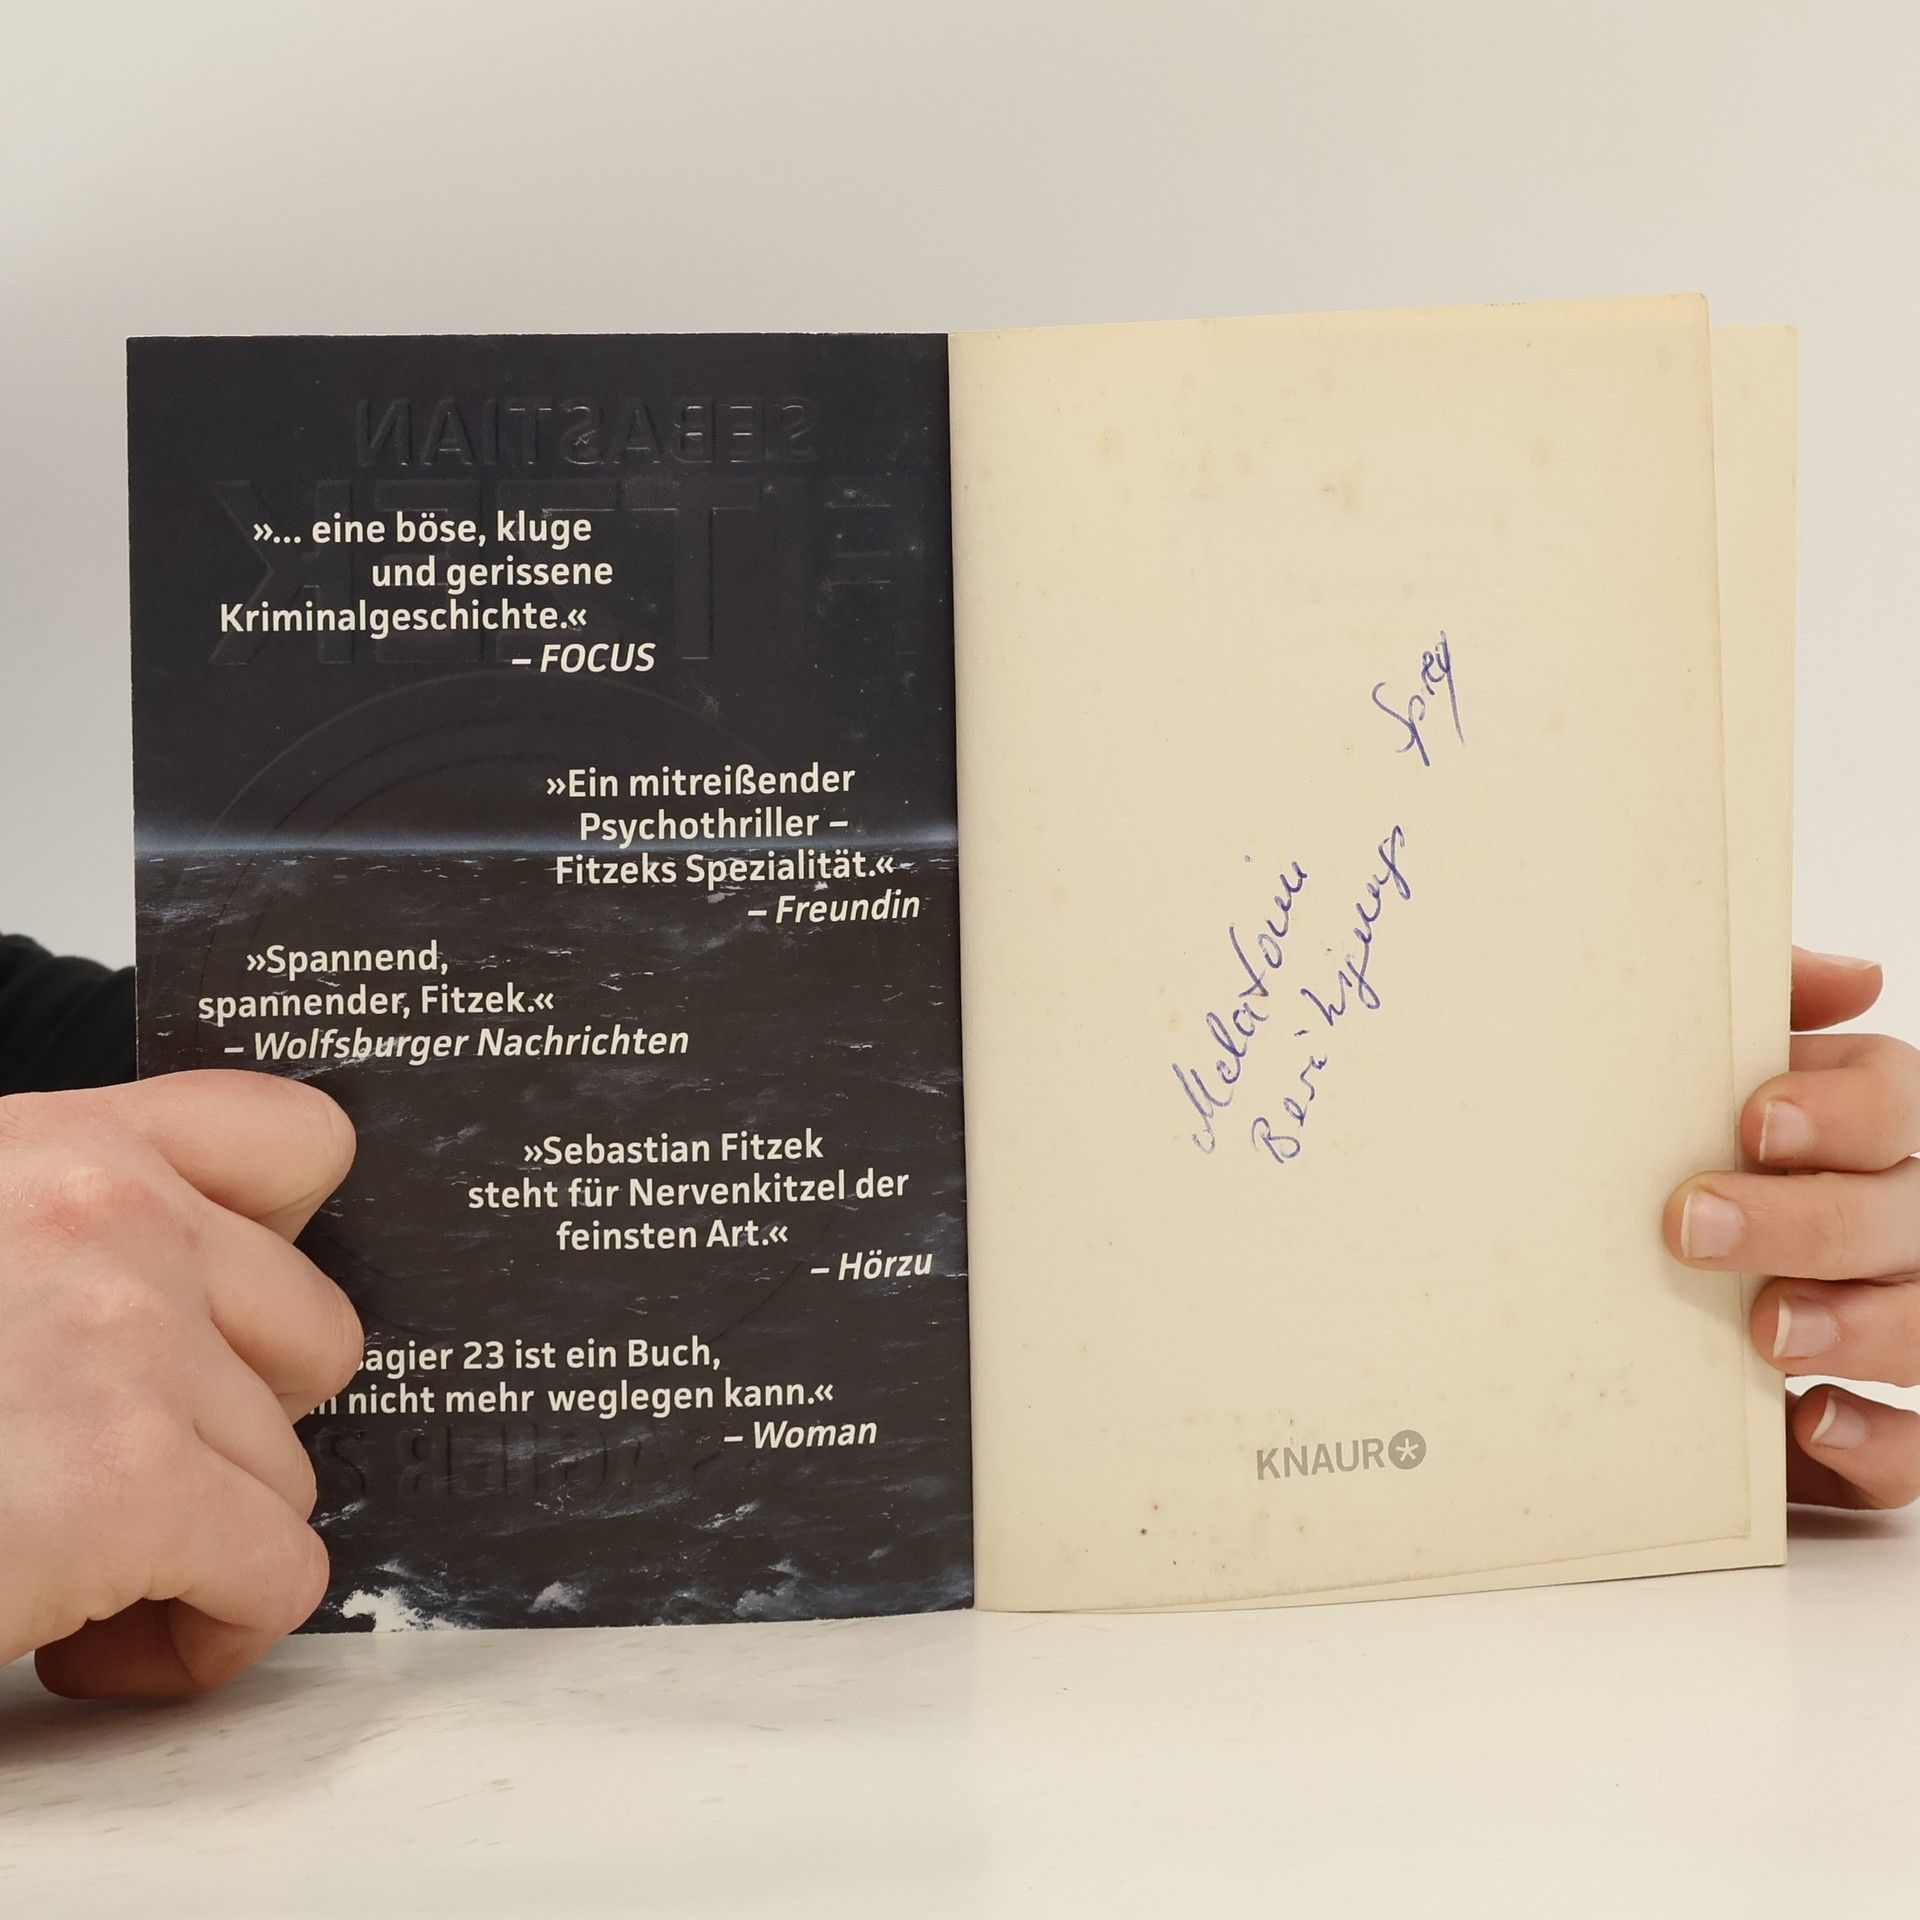 »... eine böse, kluge
und gerissene
Kriminalgeschichte.«
– FOCUS
»Ein mitreißender
Psychothriller –
Fitzeks Spezialität.«
– Freundin
»Spannend,
spannender, Fitzek.«
– Wolfsburger Nachrichten
»Sebastian Fitzek
steht für Nervenkitzel der
feinsten Art.«
– Hörzu
agier 23 ist ein Buch,
nicht mehr weglegen kann.«
– Woman
SEBASTIAN
FITZEK
Melatonin
Beruhigungs Spray
KNAUR